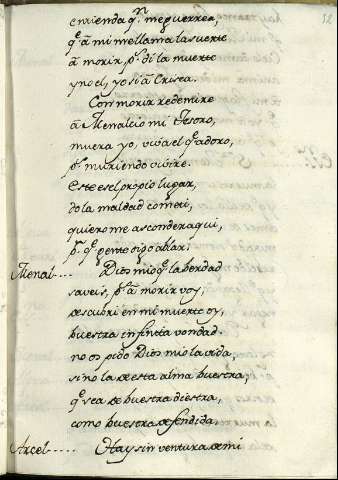 52
entienda qⁿ me guerrea,
q̃ à mi me llama la suerte
à morir, pˢ di la muerte
yno el, yo si à Crisea.
Con morir redemire
à Menalcio mi Tesoro,
muera yo, viva el q̃ adoro,
pˢ muriendo vivire.
Este es el propio lugar,
do la maldad cometi,
quiero me asconder aqui,
pˢ q̃ gente oigo ablar.
Menal.... Dios mio q̃ la berdad
saveis, pˢ à morir voy,
descubri en mi muerte oy,
buestra infinita vondad.
no os pido Dios mio la vida,
sino la de esta alma buestra,
q̃ sea de buestra diestra,
como buestra defendida.
Arcel.... Hay sin ventura de mi